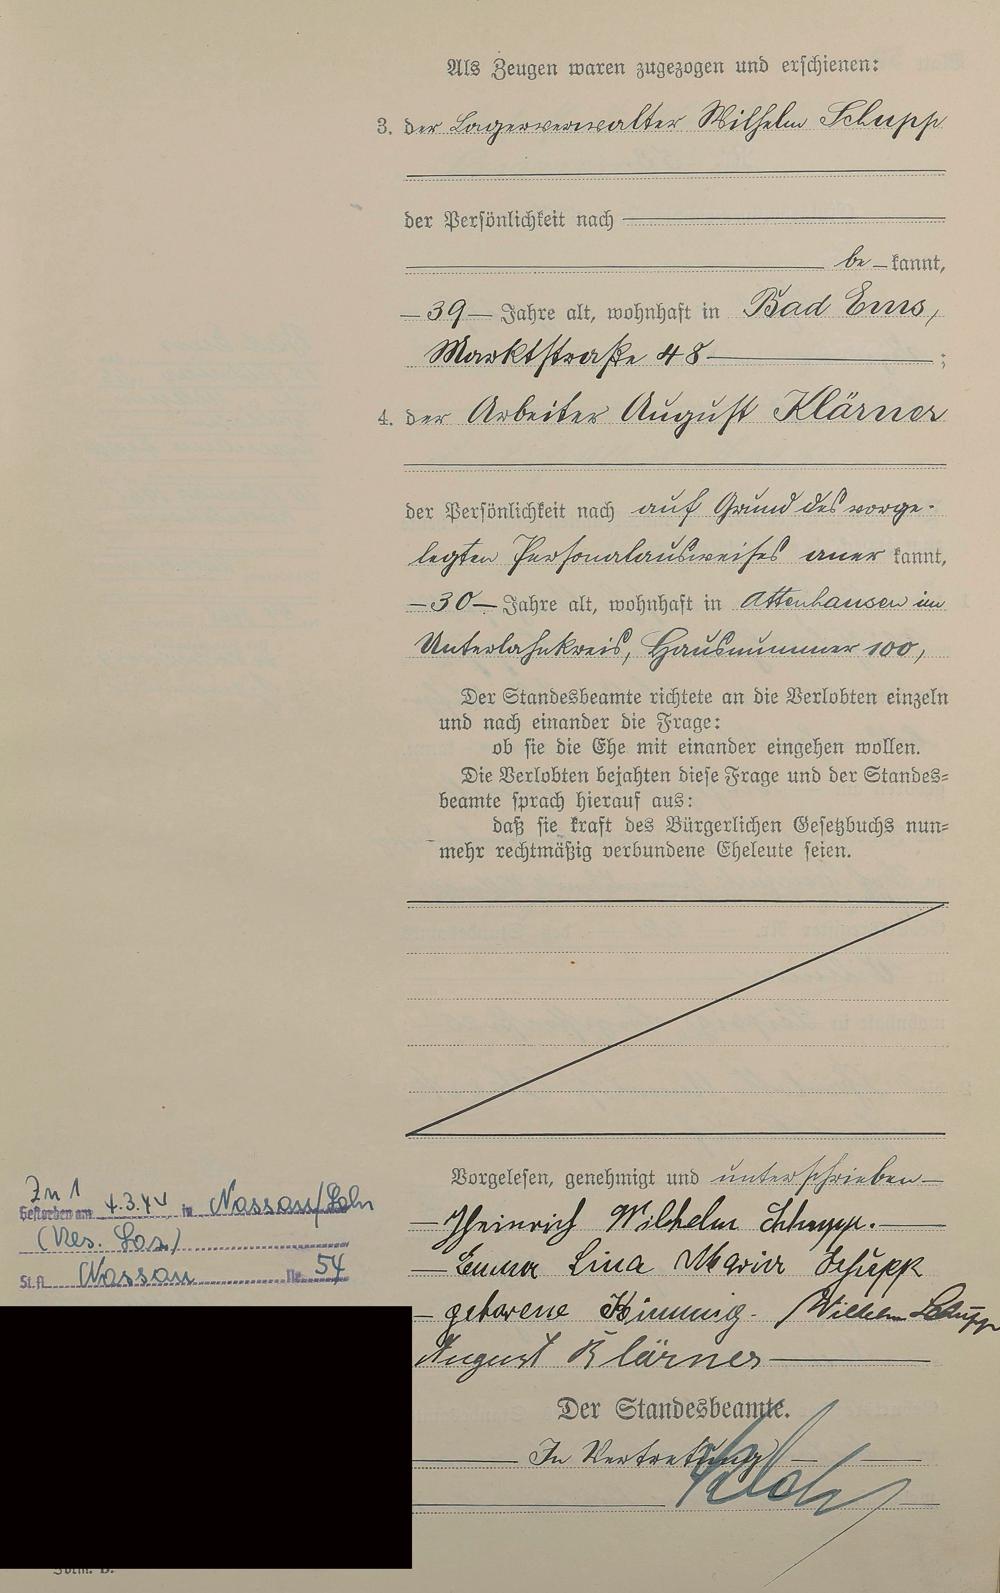 Als Zeugen waren zugezogen und erschienen:
3. der Lagerverwalter Wilhelm Schupp
der Persönlichkeit nach
be kannt,
39 Jahre alt, wohnhaft in Bad Ems,
Marktstraße 48 ;
4. der Arbeiter August Klärner
der Persönlichkeit nach auf Grund des vorge-
legten Personalausweises aner kannt,
30 Jahre alt, wohnhaft in Attenhausen im
Unterlahnkreis, Hausnummer 100,
Der Standesbeamte richtete an die Verlobten einzeln
und nach einander die Frage:
ob sie die Ehe mit einander eingehen wollen.
Die Verlobten bejahten diese Frage und der Standes=
beamte sprach hierauf aus:
daß sie kraft des Bürgerlichen Gesetzbuchs nun=
mehr rechtmäßig verbundene Eheleute seien.
Vorgelesen, genehmigt und unterschrieben
Heinrich Wilhelm Schupp.
Emma Lina Maria Schupp
geborene Wilhelm Schupp
August Klärner
Der Standesbeamte.
In Vertretung
Zu 1
Gestorben am 4.3.44 in Nassau/Lahn
(Res. Laz.)
St.A. Nassau Nr. 54
Form. B.